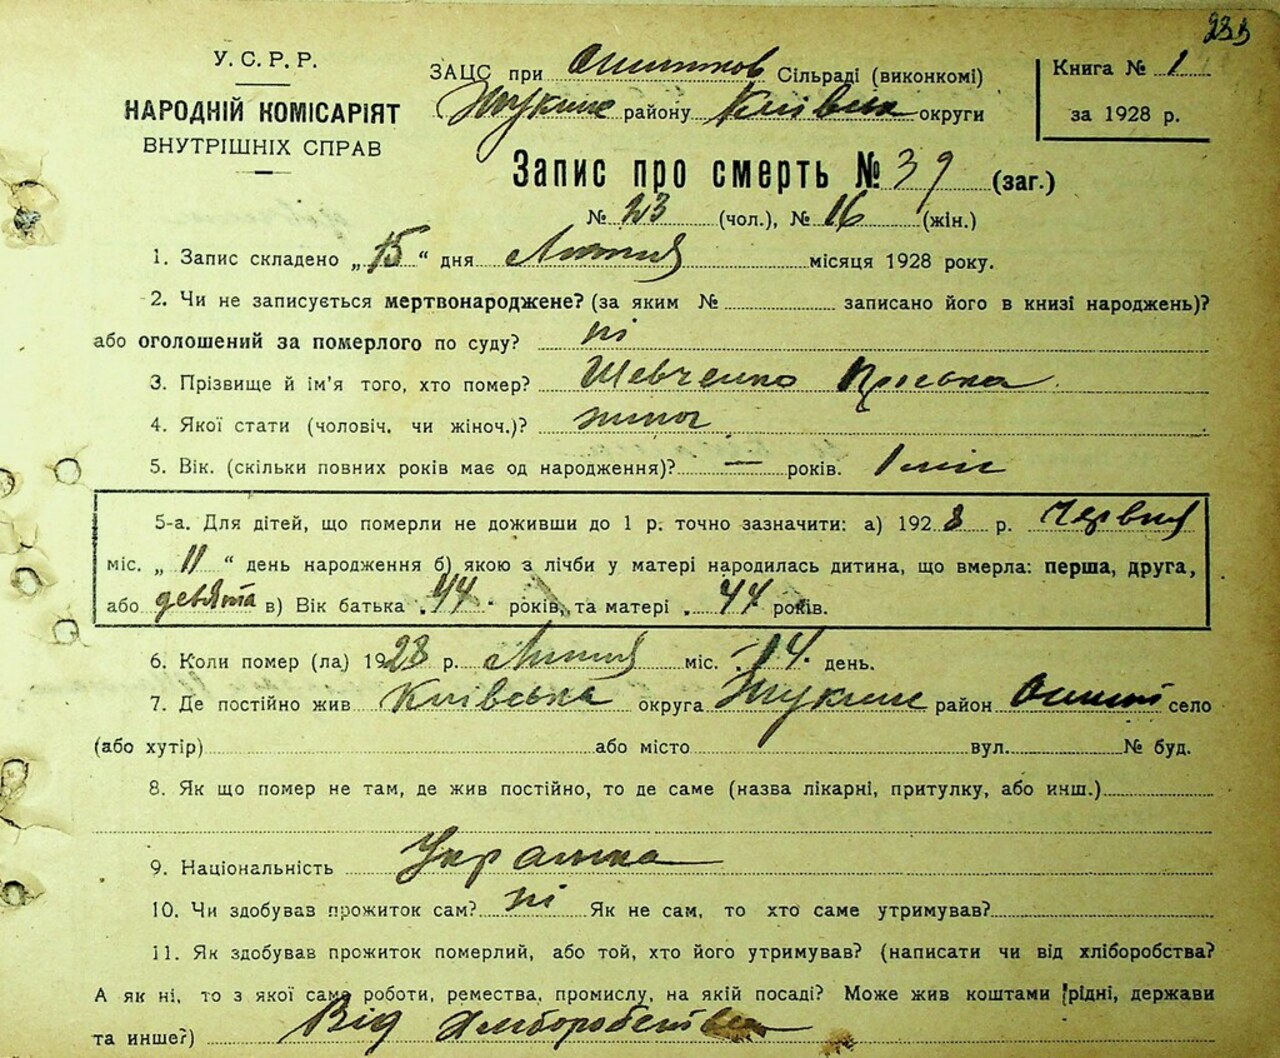 233
У. С. Р. Р.
НАРОДНІЙ КОМІСАРІЯТ
ВНУТРІШНІХ СПРАВ
ЗАЦС при Сільраді (виконкомі)
Жукинс району Київськ округи
Книга № 1
за 1928 р.
Запис про смерть № 39 (заг.)
№ 23 (чол.), № 16 (жін.)
1. Запис складено „ 15 “ дня Липня місяця 1928 року.
2. Чи не записується мертвонароджене? (за яким № записано його в книзі народжень)?
або оголошений за померлого по суду? ні
3. Прізвище й ім'я того, хто помер? Шевченко Пріська
4. Якої стати (чоловіч. чи жіноч.)? жіноч
5. Вік. (скільки повних років має од народження)? — років. 1 міс
5-а. Для дітей, що померли не доживши до 1 р. точно зазначити: а) 1928 р. Червня
міс. „ 11 “ день народження б) якою з лічби у матері народилась дитина, що вмерла: перша, друга,
або девята в) Вік батька 44 років, та матері 44 років.
6. Коли помер (ла) 1928 р. Липня міс. 14 день.
7. Де постійно жив Київська округа Жукинс район село
(або хутір) або місто вул. № буд.
8. Як що помер не там, де жив постійно, то де саме (назва лікарні, притулку, або инш.)
9. Національність Українка
10. Чи здобував прожиток сам? ні Як не сам, то хто саме утримував?
11. Як здобував прожиток померлий, або той, хто його утримував? (написати чи від хліборобства?
А як ні, то з якої саме роботи, ремества, промислу, на якій посаді? Може жив коштами рідні, держави
та инше?) Від Хліборобства